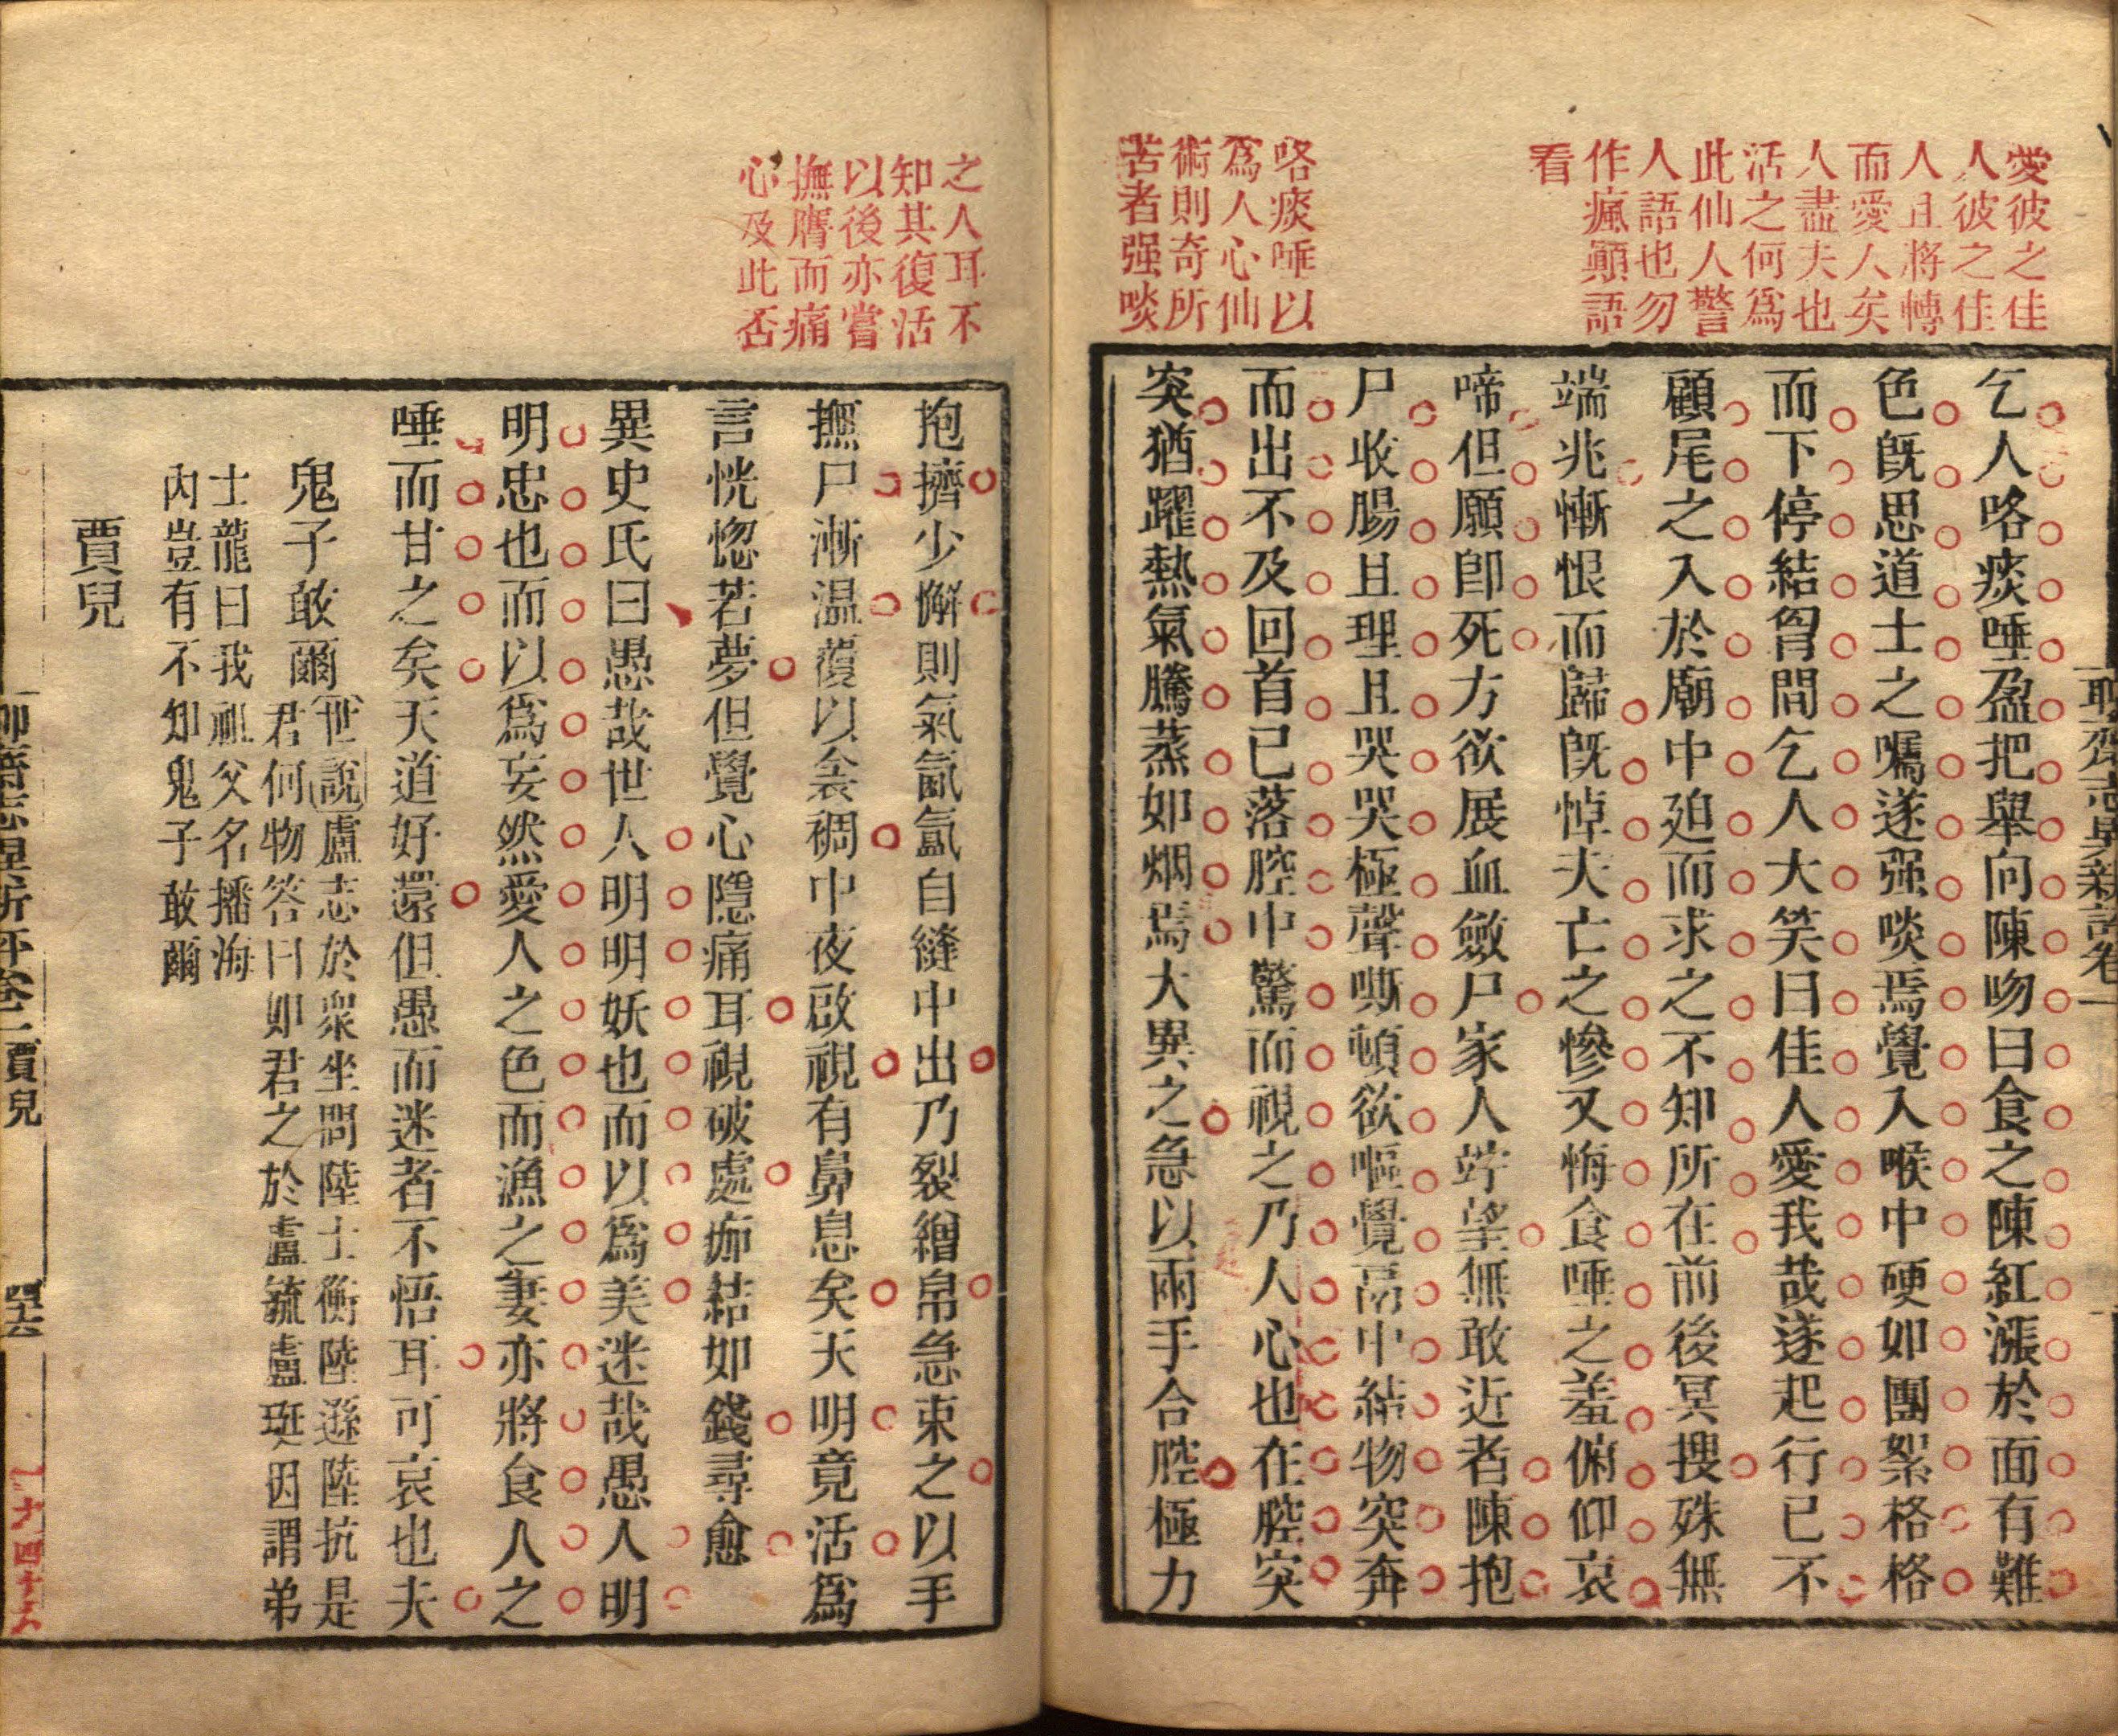 愛彼之佳
人彼之佳
人且將轉
而愛人矣
人盡夫也
活之何爲
此仙人警
人語也勿
作瘋顚語
看
咯痰唾以
爲人心仙
術則奇所
苦者强啖
聊齋志異新評卷一
乞人咯痰唾盈把舉向陳吻曰食之陳紅漲於面有難
色旣思道士之囑遂强啖焉覺入喉中硬如團絮格格
而下停結胷間乞人大笑曰佳人愛我哉遂起行已不
顧尾之入於廟中廹而求之不知所在前後冥搜殊無
端兆慚恨而歸旣悼夫亡之慘又悔食唾之羞俯仰哀
啼但願卽死方欲展血斂尸家人竚望無敢近者陳抱
尸收腸且理且哭哭極聲嘶頓欲嘔覺鬲中結物突奔
而出不及回首已落腔中驚而視之乃人心也在腔突
突猶躍熱氣騰蒸如烟焉大異之急以兩手合腔極力
之人耳不
知其復活
以後亦嘗
撫膺而痛
心及此否
抱擠少懈則氣氤氳自縫中出乃裂繒帛急束之以手
撫尸漸温覆以衾裯中夜啟視有鼻息矣天明竟活爲
言恍惚若夢但覺心隱痛耳視破處痂結如錢尋愈
異史氏曰愚哉世人明明妖也而以爲美迷哉愚人明
明忠也而以爲妄然愛人之色而漁之妻亦將食人之
唾而甘之矣天道好還但愚而迷者不悟耳可哀也夫
鬼子敢爾
世說盧志於衆坐問陸士衡陸遜陸抗是
君何物答曰如君之於盧毓盧珽因謂弟
士龍曰我祖父名播海
內豈有不知鬼子敢爾
賈兒
聊齋志異新評卷一 賈兒